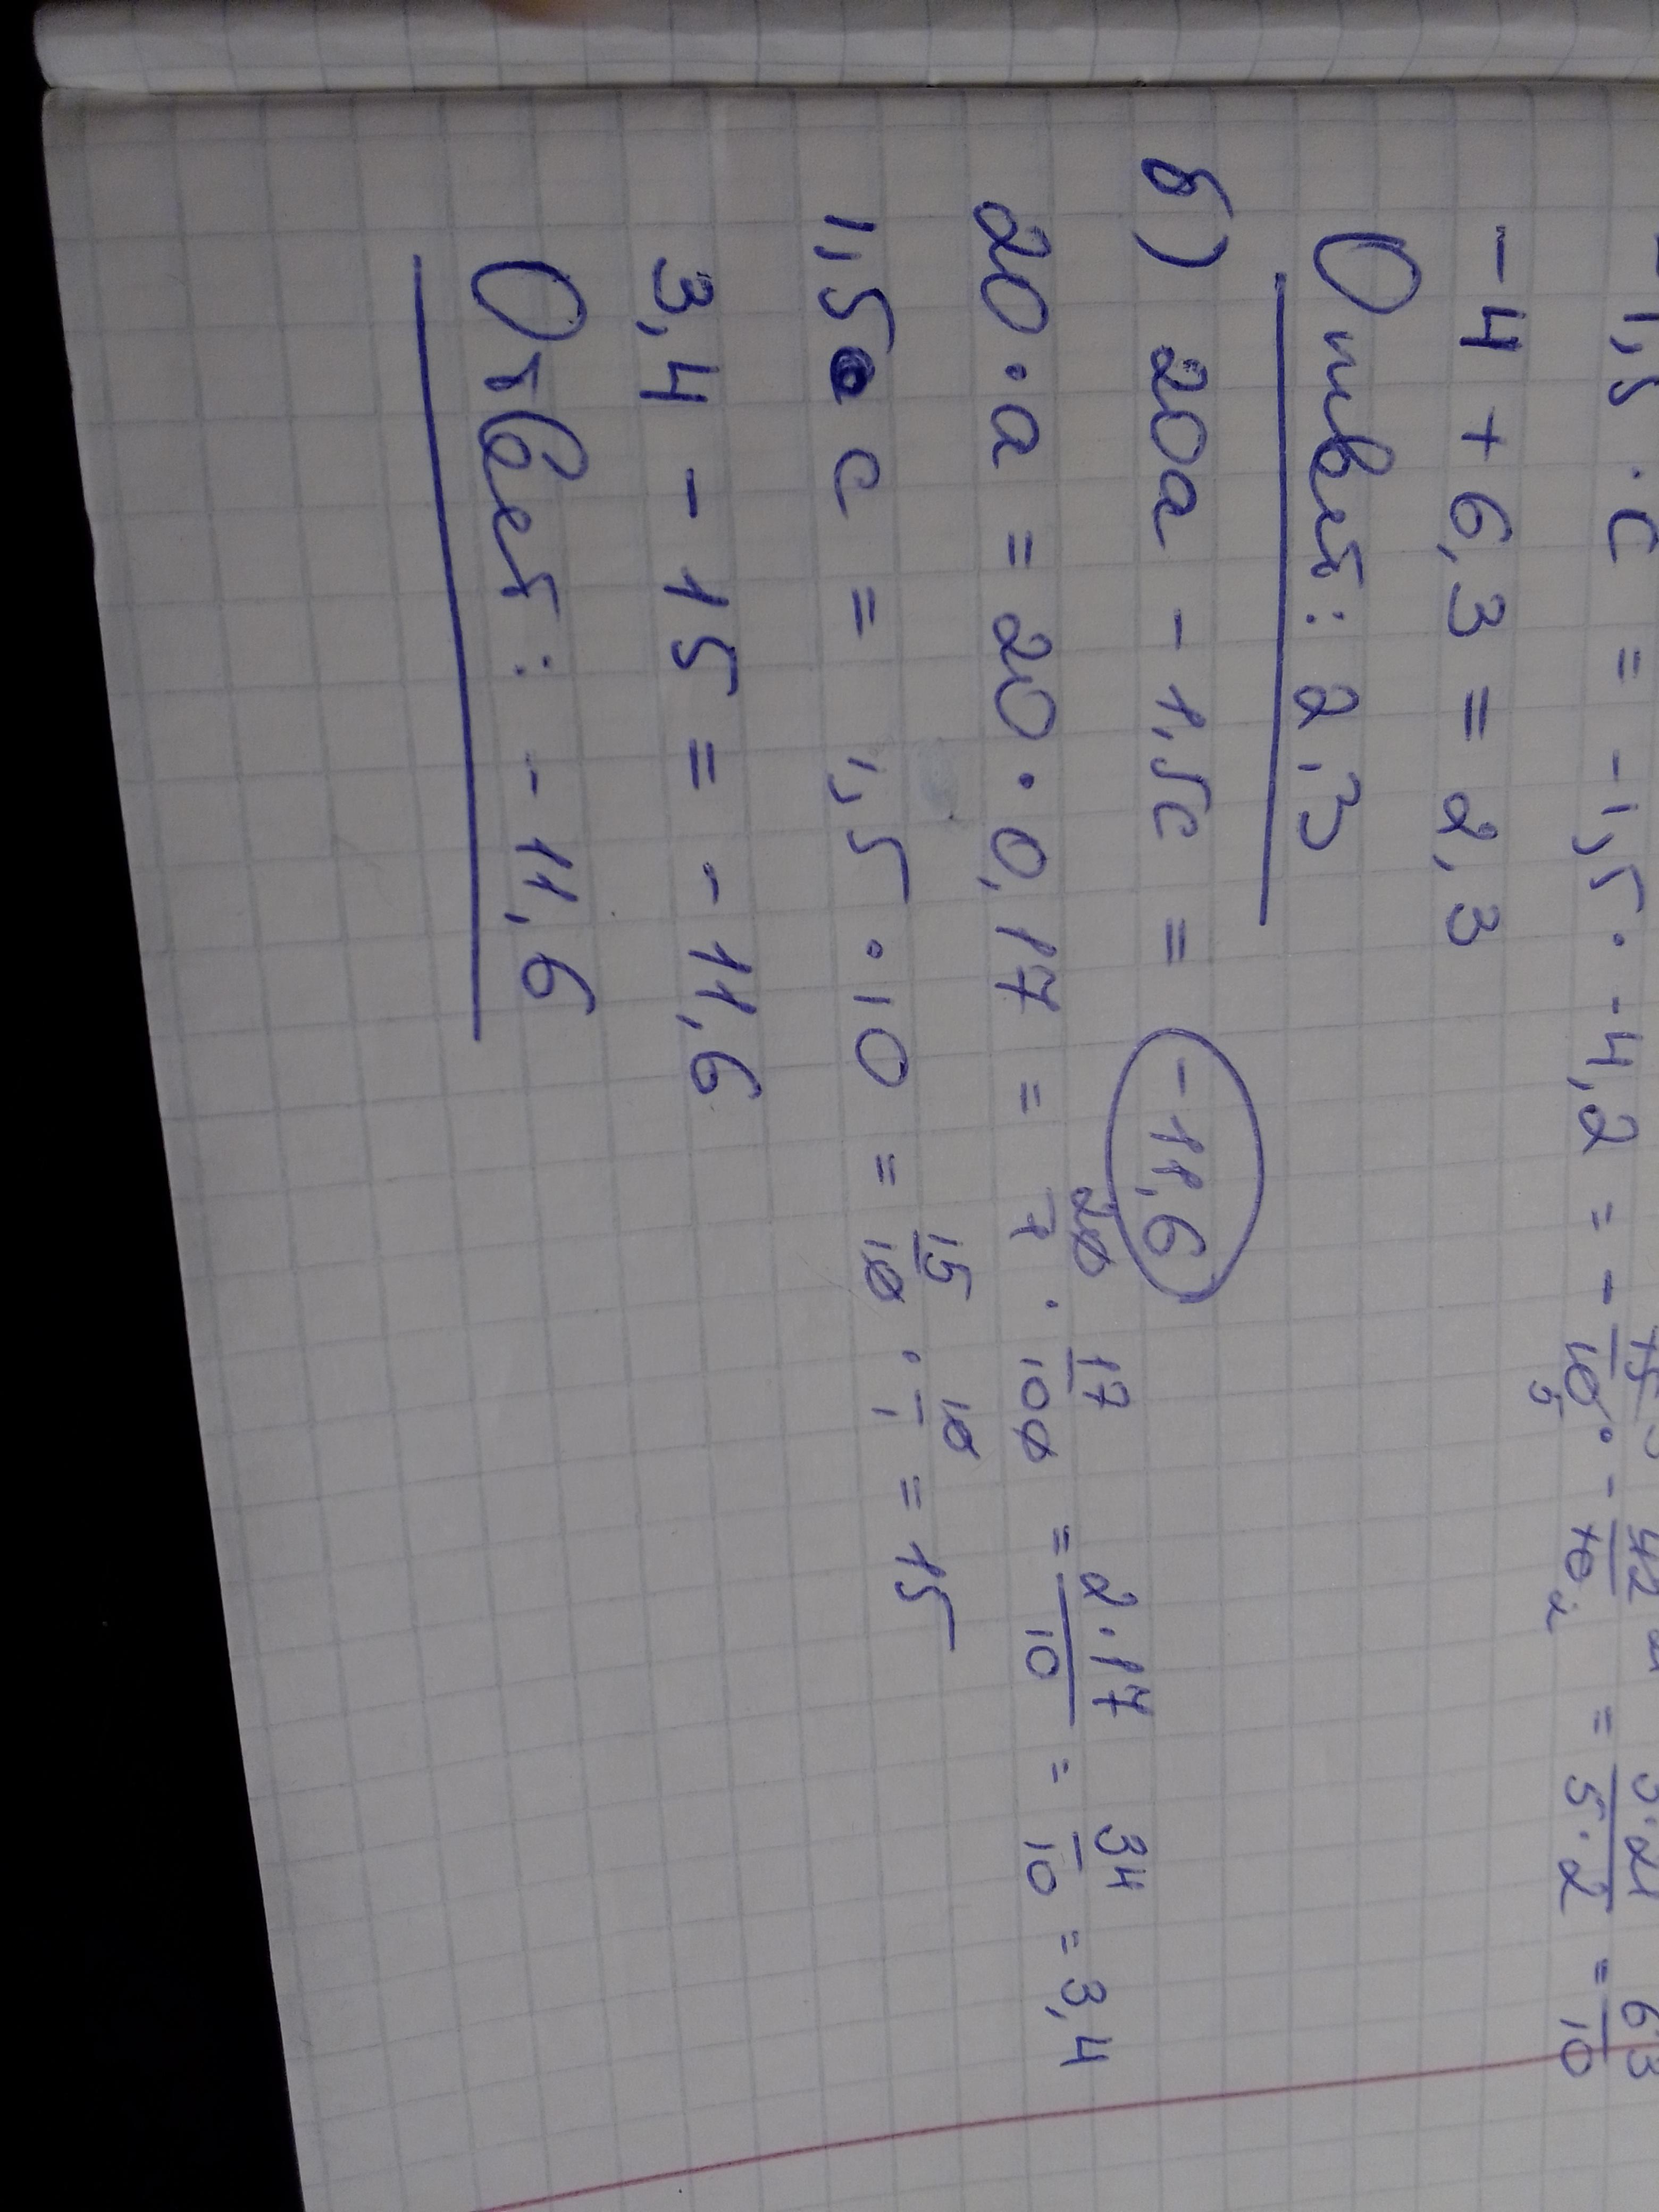 -1,5 · c = -1,5 · -4,2 = - 15/10 · - 42/10 = 3·21/5·2 = 63/10
-4 + 6,3 = 2,3
Ответ: 2,3
б) 20a - 1,5c = -11,6
20 · a = 20 · 0,17 = 20/1 · 17/100 = 2·17/10 = 34/10 = 3,4
1,5 · c = 1,5 · 10 = 15/10 · 10/1 = 15
3,4 - 15 = -11,6
Ответ: -11,6